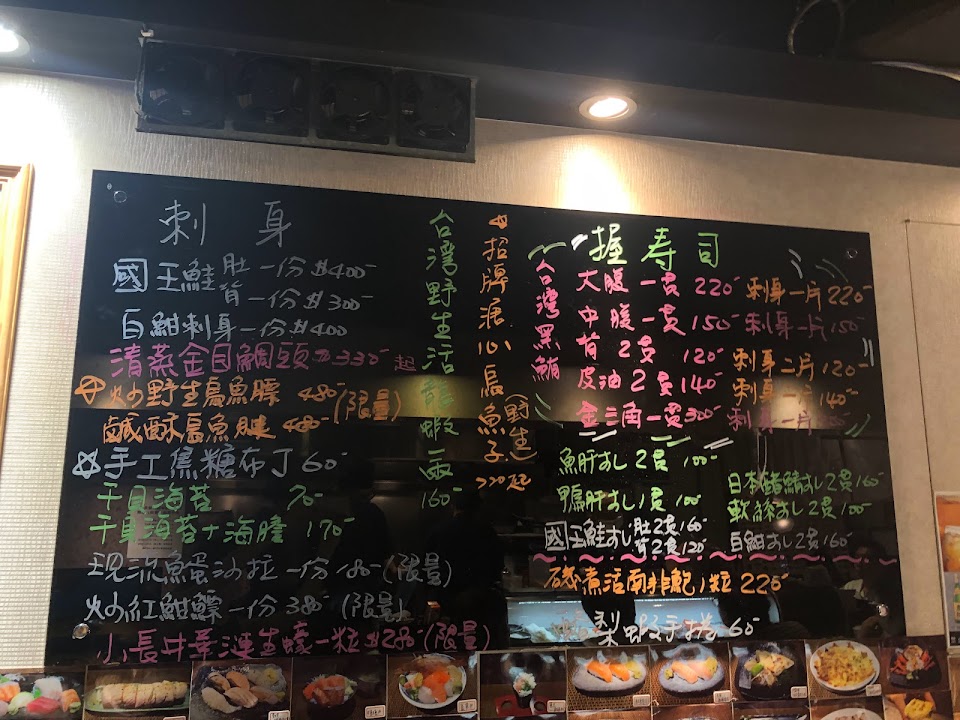 刺身
國王鮭肚一份$400
背一份$300
白鮒刺身一份$400
清蒸金目鯛頭 330起
炒野生烏魚膘 480(限量)
鹹酥烏魚腱 480
手工焦糖布丁60
干貝海苔 70
干貝海苔+海膽 170
現流魚蛋沙拉一份180(限量)
炒紅鮒鰾一份380(限量)
小長井華漣生蠔一粒$280(限量)
台灣野生活龍蝦 兩 160
招牌溏心烏魚子(野生) 220起
握寿司
台灣黑鮪
大腹一貫220 刺身一片220
中腹一貫150 刺身一片150
背 2貫 120 刺身二片120
皮油2貫140 刺身一片140
金三角一貫300 刺身一片
魚肝すし2貫 100
鴨肝すし1貫 100
國王鮭すし肚2貫160
背2貫120
日本鯖すし2貫160
軟絲すし2貫100
白鮒すし2貫160
磯煮活南非鮑1粒220
梨蝦手捲60